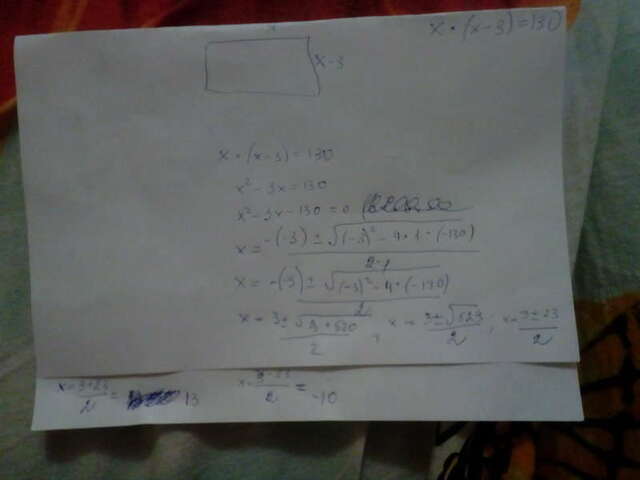 x
x • (x-3) = 130
x-3
x • (x-3) = 130
x² - 3x = 130
x² - 3x - 130 = 0
x = -(-3) ± √(-3)² - 4 • 1 • (-130) / 2•1
x = -(-3) ± √(-3)² - 4 • (-130) / 2
x = 3 ± √9 + 520 / 2 , x = 3 ± √529 / 2 ; x = 3 ± 23 / 2
x = 3+23 / 2 = 13 x = 3-23 / 2 = -10